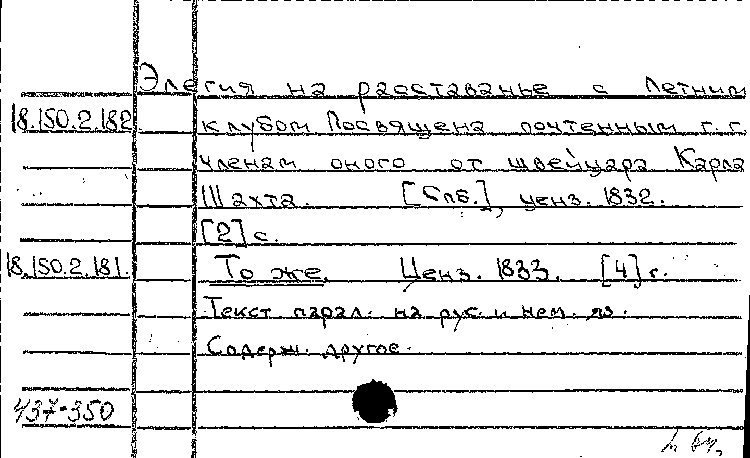 Элегия на расставанье с Летним
18.150.2.182 клубом Посвящена почтенным г.г.
членам оного от швейцара Карла
Шахта. [Спб.], ценз. 1832.
[2] с.
18.150.2.181. То же. Ценз. 1833. [4] с.
Текст парал. на рус. и нем. яз.
Содерж. другое.
437-350